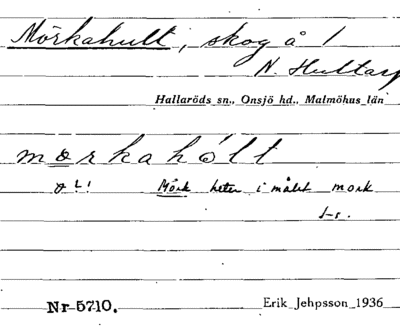 Mörkahult, skog å /
N. Hultarp
Hallaröds sn., Onsjö hd., Malmöhus län
mørkahólt
ø L! Mörk heter i målet mork
Nr 5710. Erik Jehpsson 1936